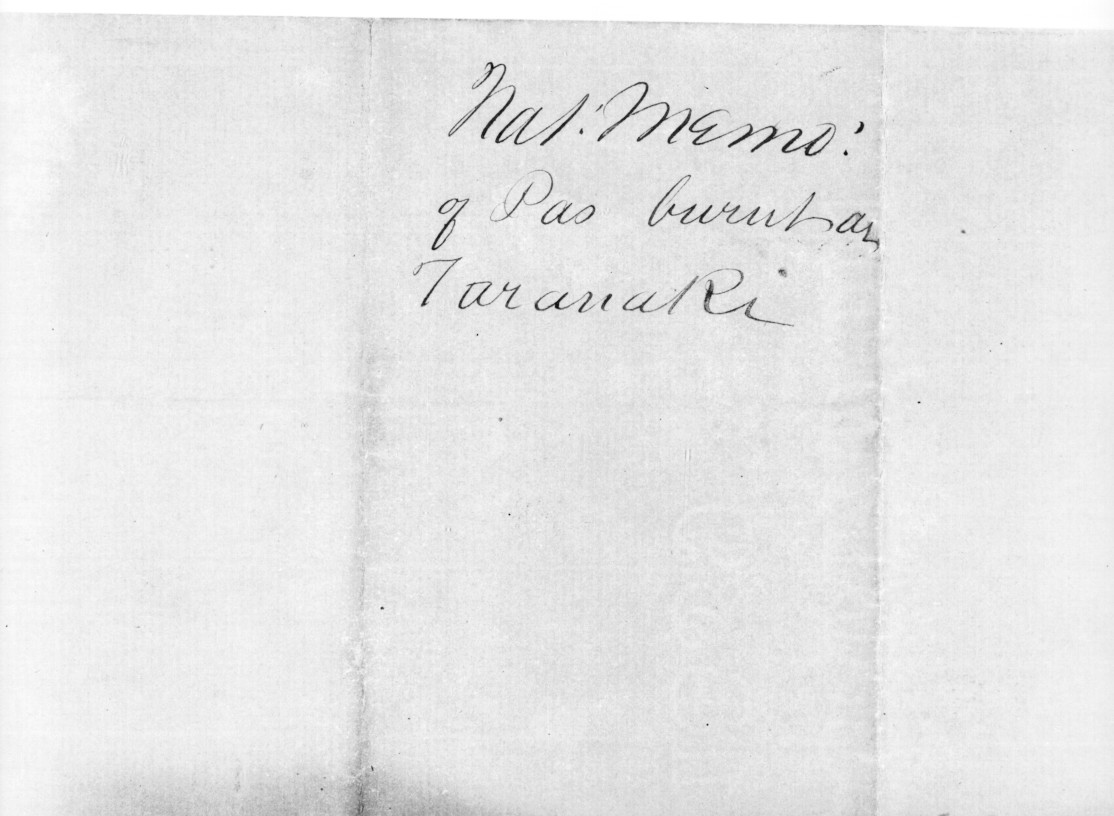 Nat: Memo:
of Pas burnt at
Taranaki